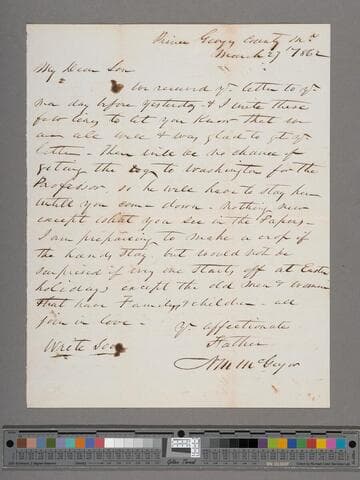 Prince Georges County Md.
March 27th 1862
My Dear Son
We received yr letter to yr
ma day before yesterday & I write these
few lines to let you know that we
are all well & was glad to get yr
letter - There will be no chance of
geting the to Washington for the
Professor, so he will have to stay here
untill you come down - nothing new
except what you see in the Papers -
I am prepairing to make a crop if
the hands stay, but would not be
surprised if every one starts off at Easter
holidays except the old men & women
that have Familys & children - all
join in love -
yr affectionate
Father
Write Soon